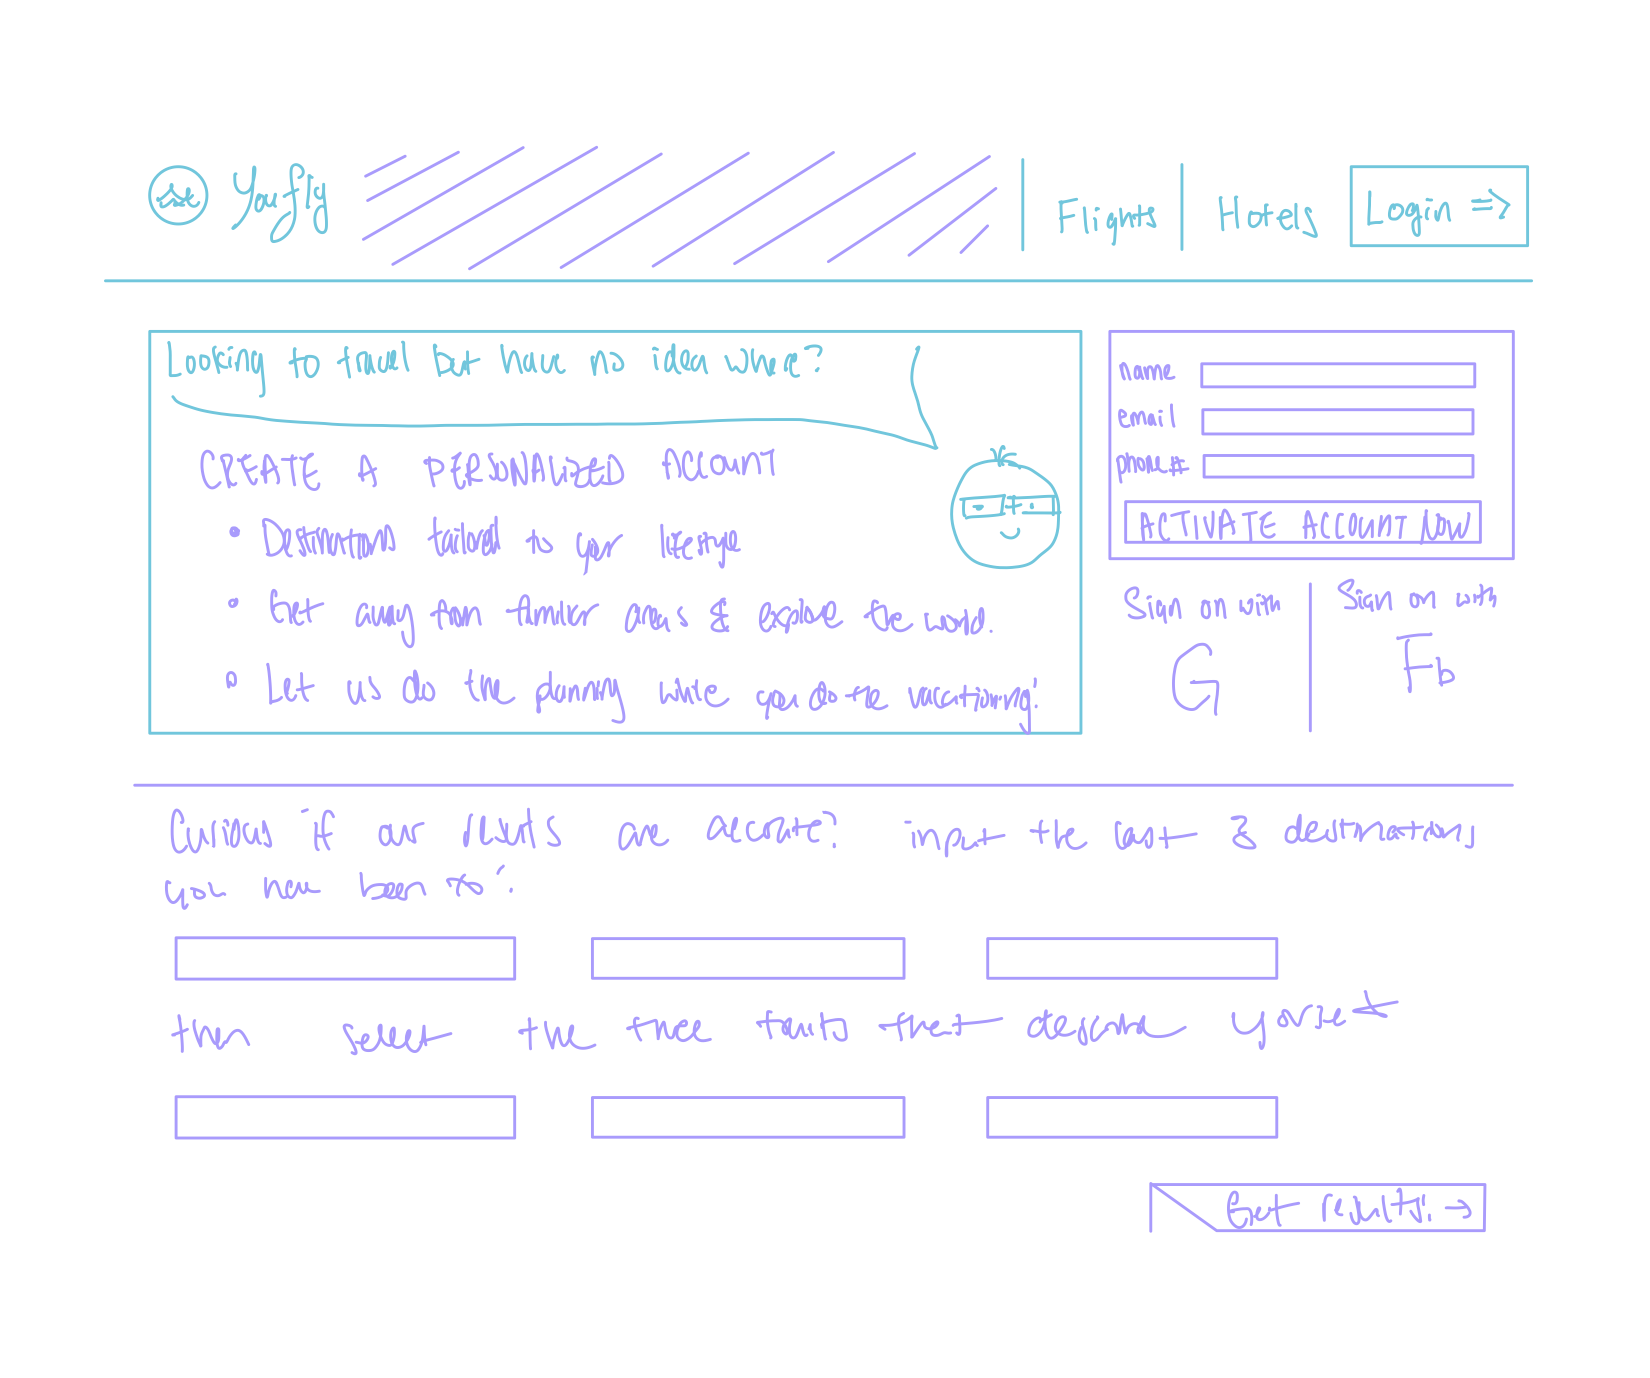 Youfly
Flights
Hotels
Login =>
Looking to travel but have no idea where?
CREATE A PERSONALIZED ACCOUNT
• Destinations tailored to your lifestyle
• Get away from familiar areas & explore the world.
• Let us do the planning while you do the vacationing!
name
email
phone#
ACTIVATE ACCOUNT NOW
Sign on with
G
Sign on with
Fb
Curious if our results are accurate? input the last 3 destinations
you have been to:
then select the three traits that describe yourself
Get results! →